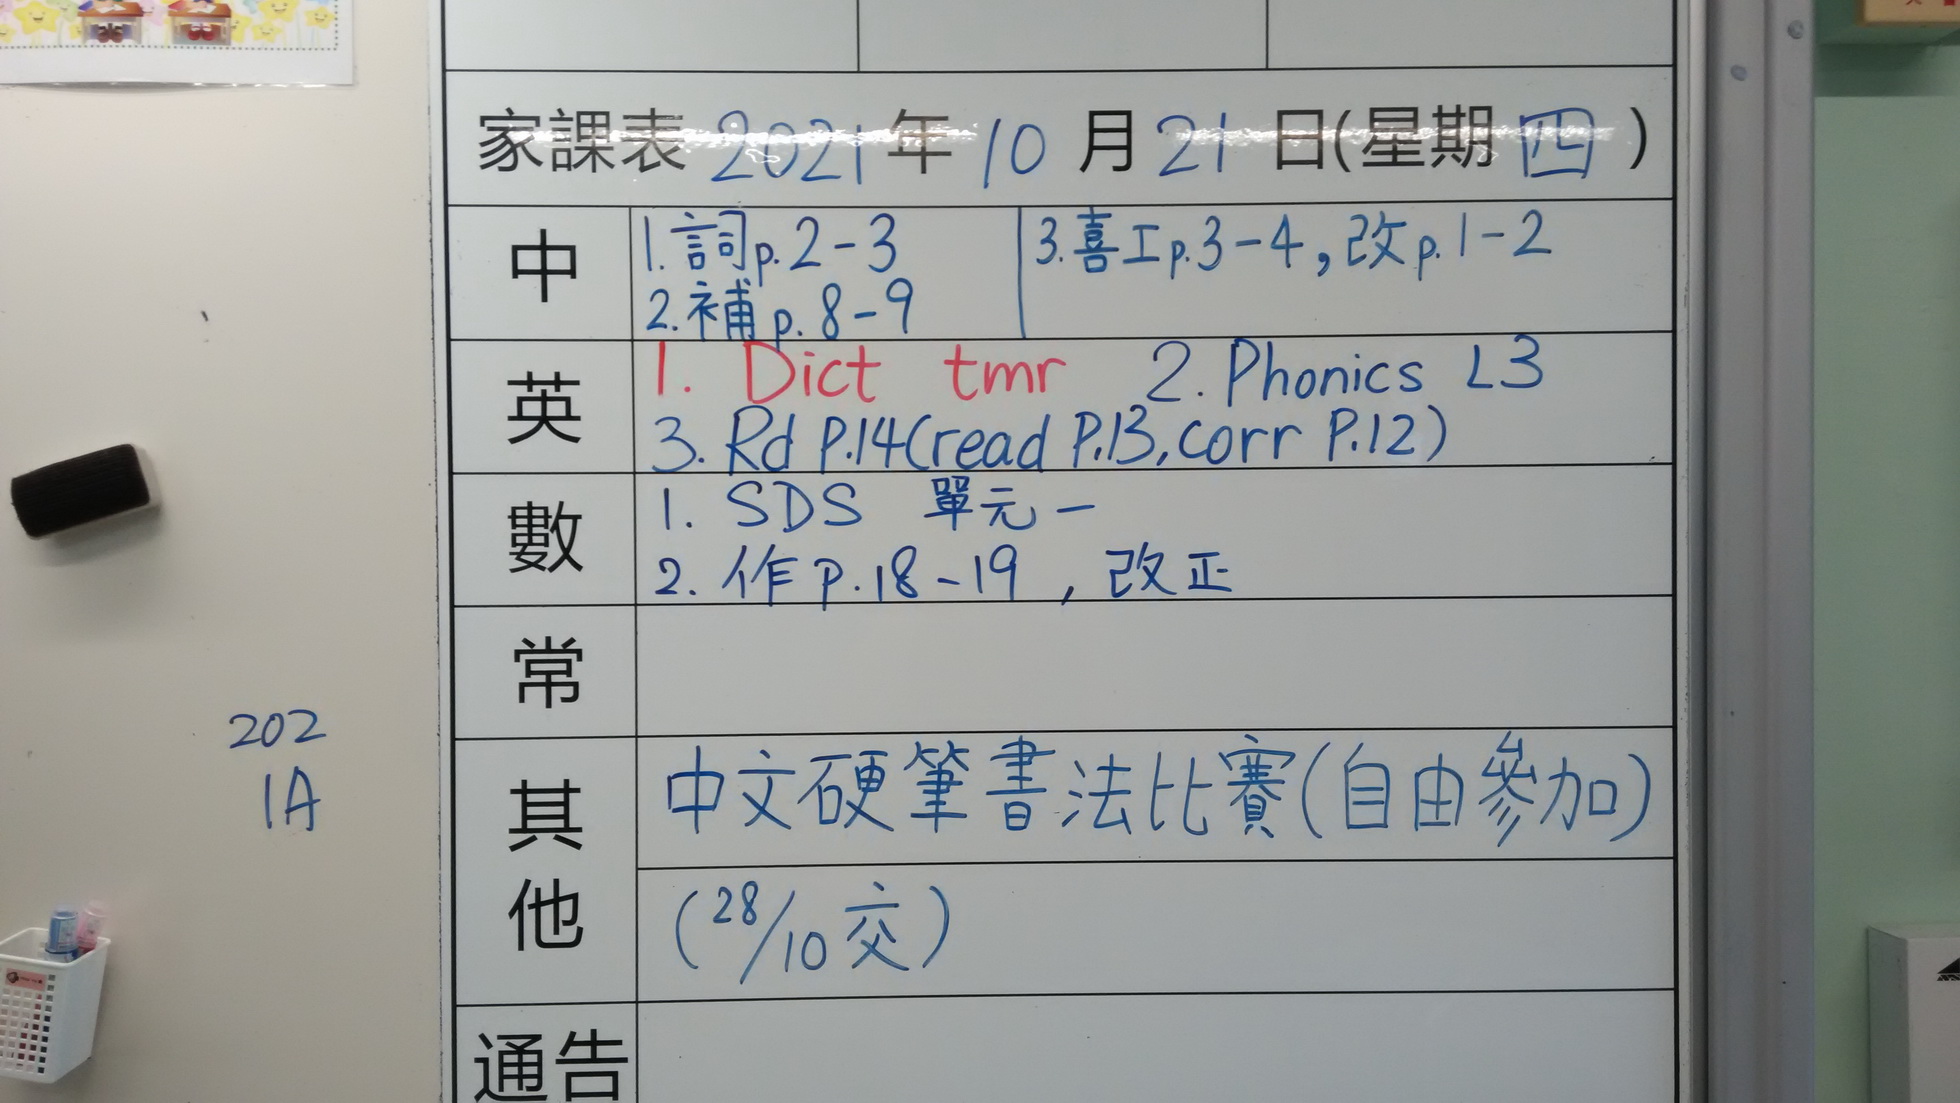 家課表 2021 年 10 月 21 日(星期 四 )
中
1. 詞 p. 2-3
2. 補 p. 8-9
3. 喜工 p. 3-4, 改 p. 1-2
英
1. Dict tmr 2. Phonics L3
3. Rd P.14 (read P.13, corr P.12)
數
1. SDS 單元一
2. 作 p. 18-19, 改正
常
其他
中文硬筆書法比賽(自由參加)
(28/10 交)
通告
202
1A